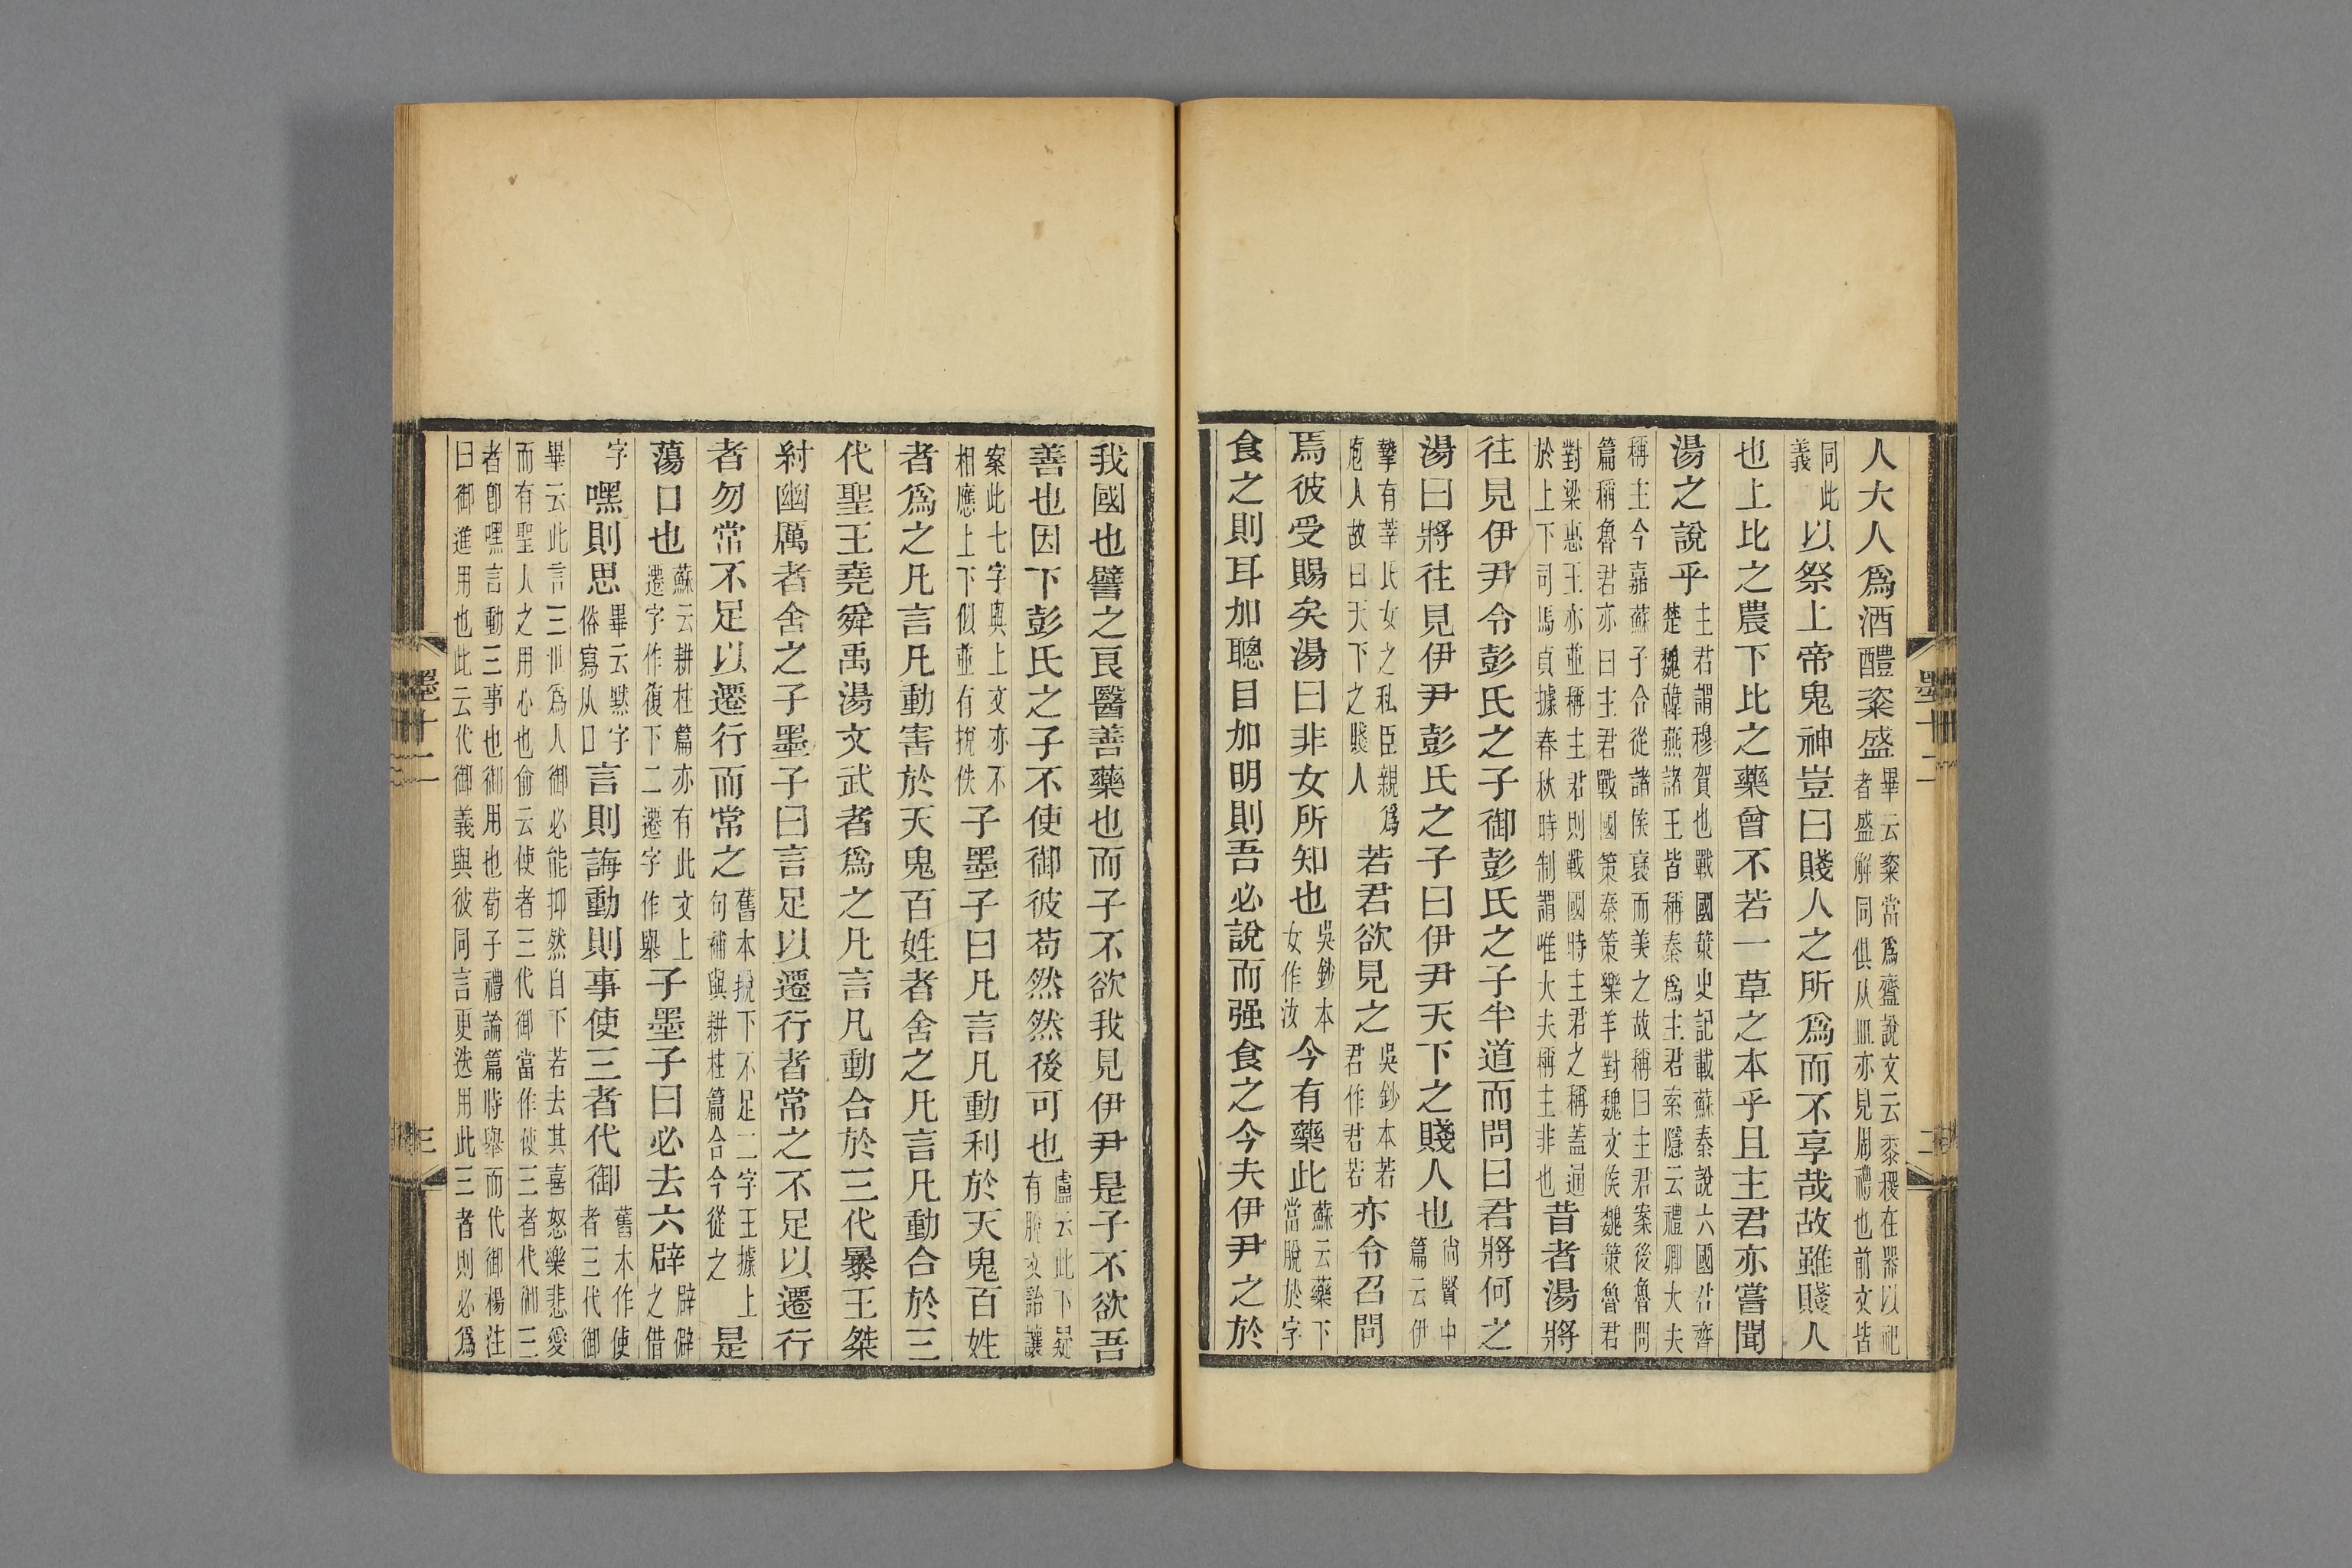 人大人爲酒醴粢盛畢云粢當爲齍說文云黍稷在器以祀者盛解同俱从皿亦見周禮也前文皆
同此義以祭上帝鬼神豈曰賤人之所爲而不享哉故雖賤人
也上比之農下比之藥曾不若一草之本乎且主君亦嘗聞
湯之說乎主君謂穆賀也戰國策史記載蘇秦說六國君齊楚魏韓燕諸王皆稱秦爲主君索隱云禮卿大夫
稱主今嘉蘇子合從諸侯褒而美之故稱曰主君案後魯問篇稱魯君亦曰主君戰國策秦策樂羊對魏文侯魏策魯君
對梁惠王亦並稱主君則戰國時主君之稱蓋通於上下司馬貞據春秋時制謂唯大夫稱主非也昔者湯將
往見伊尹令彭氏之子御彭氏之子半道而問曰君將何之
湯曰將往見伊尹彭氏之子曰伊尹天下之賤人也尙賢中篇云伊
摯有莘氏女之私臣親爲庖人故曰天下之賤人若君欲見之吳鈔本若君作君若亦令召問
焉彼受賜矣湯曰非女所知也吳鈔本女作汝今有藥此蘇云藥下當脫於字
食之則耳加聰目加明則吾必說而强食之今夫伊尹之於
我國也譬之良醫善藥也而子不欲我見伊尹是子不欲吾
善也因下彭氏之子不使御彼苟然然後可也盧云此下疑有脫文詒讓
案此七字與上文亦不相應上下似並有挩佚子墨子曰凡言凡動利於天鬼百姓
者爲之凡言凡動害於天鬼百姓者舍之凡言凡動合於三
代聖王堯舜禹湯文武者爲之凡言凡動合於三代暴王桀
紂幽厲者舍之子墨子曰言足以遷行者常之不足以遷行
者勿常不足以遷行而常之舊本挩下不足二字王據上句補與耕柱篇合今從之是
蕩口也蘇云耕柱篇亦有此文上遷字作復下二遷字作舉子墨子曰必去六辟辟僻之借
字嘿則思畢云默字俗寫从口言則誨動則事使三者代御舊本作使者三代御
畢云此言三世爲人御必能抑然自下若去其喜怒樂悲愛而有聖人之用心也俞云使者三代御當作使三者代御三
者卽嘿言動三事也御用也荀子禮論篇時舉而代御楊注曰御進用也此云代御義與彼同言更迭用此三者則必爲
墨十二
二
墨十二
三